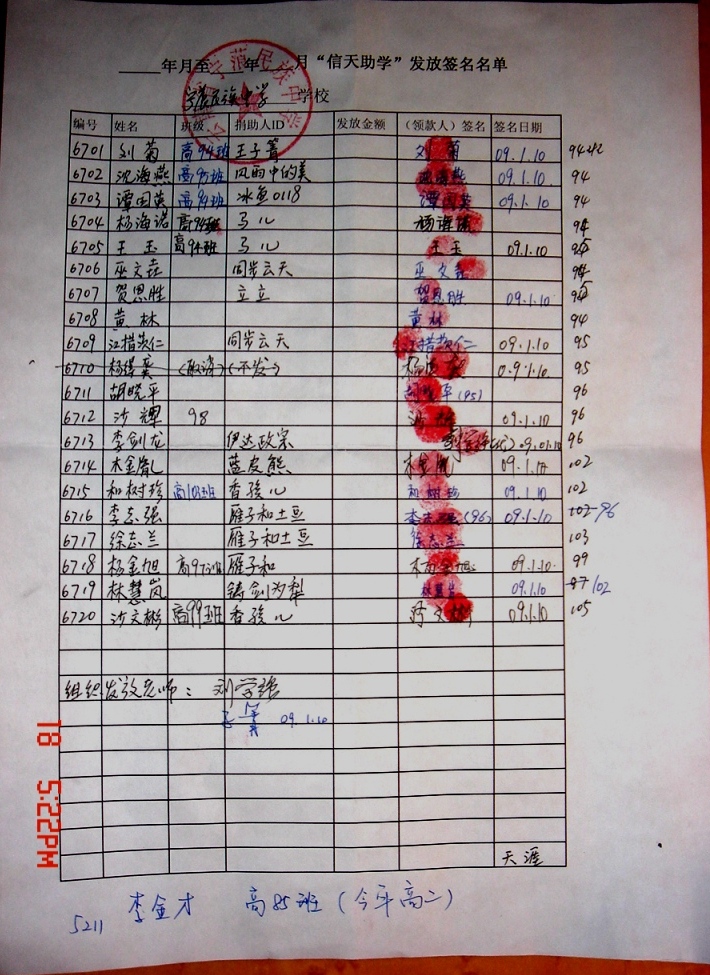 年月至 年 月“信天助学”发放签名名单
宁蒗民族中学 学校
编号 姓名 班级 捐助人ID 发放金额 (领款人)签名 签名日期
6701 刘菊 高94班 王子菁 刘菊 09.1.10 94
6702 沈海燕 高95班 风雨中的美 沈海燕 09.1.10 94
6703 谭国英 高94班 冰鱼0118 谭国英 09.1.10 94
6704 杨海诺 高94班 弓儿 杨海诺 94
6705 王玉 高94班 弓儿 王玉 09.1.10
6706 巫文垚 同步云天 巫文垚 94
6707 贺恩胜 立立 贺恩胜 09.1.10
6708 黄林 黄林 94
6709 江措茨仁 同步云天 江措茨仁 09.1.10 95
6710 (取消) (不发) 09.1.10. 95
6711 胡晓平 (95) 96
6712 沙辉 98 沙辉 09.1.10 96
6713 李剑龙 伊达政宗 09.01.10 96
6714 木金胤 蓝皮熊 木金胤 09.1.10 102
6715 和树珍 高103班 香孩儿 和树珍 09.1.10 102
6716 李志强 雁子和土豆 李志强(96) 09.1.10 102-96
6717 徐志兰 雁子和土豆 徐志兰 103
6718 杨金旭 高97班 雁子和 杨金旭 09.1.10. 99
6719 林慧岚 铸剑为犁 林慧岚 09.1.10 97 102
6720 沙文彬 高99班 香孩儿 沙文彬 09.1.10 105
组织发放老师: 刘学强
09.1.10
天涯
5211 李金才 高85班(今年高二)
18 5:22PM